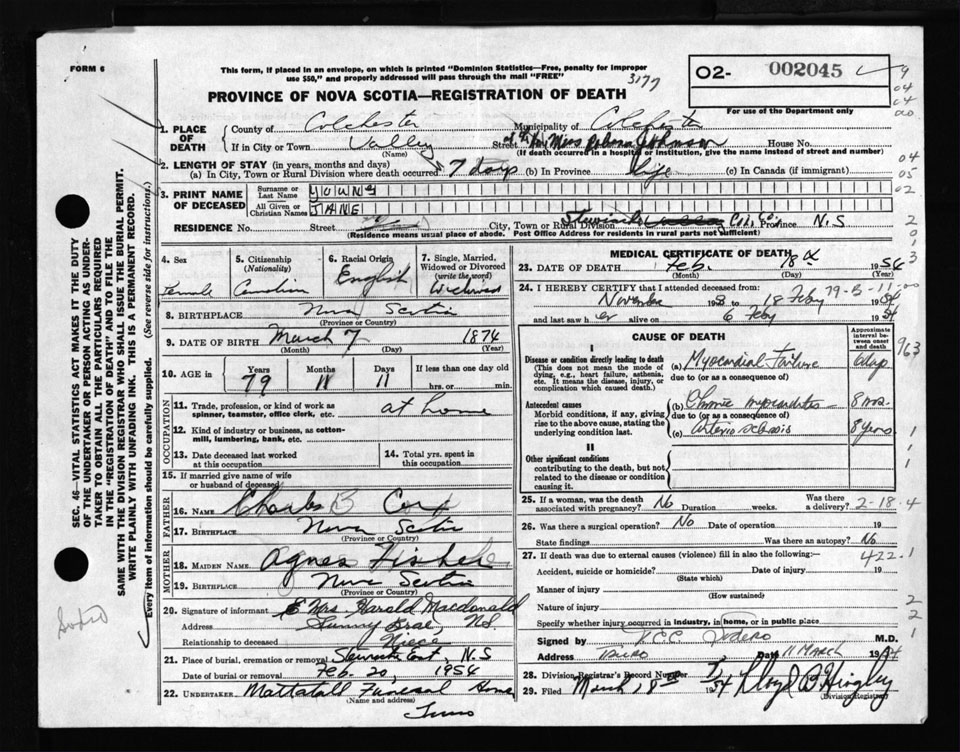 FORM 6
This form, if placed in an envelope, on which is printed "Dominion Statistics—Free, penalty for improper
use $50," and properly addressed will pass through the mail "FREE"
3177
02- 002045
PROVINCE OF NOVA SCOTIA—REGISTRATION OF DEATH
For use of the Department only
1. PLACE OF DEATH
County of Colchester Municipality of Colchester
If in City or Town Valley Street Miss Johnson House No.
(Name) (If death occurred in a hospital or institution, give the name instead of street and number)
2. LENGTH OF STAY (in years, months and days)
(a) In City, Town or Rural Division where death occurred 7 days (b) In Province life (c) In Canada (if immigrant)
3. PRINT NAME OF DECEASED
Surname or Last Name YOUNG
All Given or Christian Names JANE
RESIDENCE No. Street City, Town or Rural Division Stewiacke Col. Co. Province N.S
(Residence means usual place of abode. Post Office Address for residents in rural parts not sufficient)
SEC. 46—VITAL STATISTICS ACT MAKES IT THE DUTY
OF THE UNDERTAKER OR PERSON ACTING AS UNDER-
TAKER TO OBTAIN ALL THE PARTICULARS REQUIRED
IN THE "REGISTRATION OF DEATH" AND TO FILE THE
SAME WITH THE DIVISION REGISTRAR WHO SHALL ISSUE THE BURIAL PERMIT.
WRITE PLAINLY WITH UNFADING INK. THIS IS A PERMANENT RECORD.
Every item of information should be carefully supplied. (See reverse side for instructions.)
4. Sex Female
5. Citizenship (Nationality) Canadian
6. Racial Origin English
7. Single, Married, Widowed or Divorced (write the word) Widowed
8. BIRTHPLACE Nova Scotia
(Province or Country)
9. DATE OF BIRTH March 7 1874
(Month) (Day) (Year)
10. AGE in Years 79 Months 11 Days 11 If less than one day old
hrs. or min.
OCCUPATION
11. Trade, profession, or kind of work as
spinner, teamster, office clerk, etc. at home
12. Kind of industry or business, as cotton-
mill, lumbering, bank, etc.
13. Date deceased last worked
at this occupation
14. Total yrs. spent in
this occupation
15. If married give name of wife
or husband of deceased
FATHER
16. NAME Charles B Cox
17. BIRTHPLACE Nova Scotia
(Province or Country)
MOTHER
18. MAIDEN NAME Agnes Fisher
19. BIRTHPLACE Nova Scotia
(Province or Country)
20. Signature of informant Mrs. Harold Macdonald
Address Sunny Brae, N.S.
Relationship to deceased Niece
21. Place of burial, cremation or removal Stewiacke East, N.S
Date of burial or removal Feb. 20, 1954
22. UNDERTAKER Mattatall Funeral Home
(Name and address)
Truro
MEDICAL CERTIFICATE OF DEATH
23. DATE OF DEATH Feb. 18th 1954
(Month) (Day) (Year)
24. I HEREBY CERTIFY that I attended deceased from: 79-B-11-00
November 1953 to 18 Feby 1954
and last saw her alive on 6 Feby 1954
CAUSE OF DEATH
Approximate interval between onset and death
963
I
Disease or condition directly leading to death
(This does not mean the mode of
dying, e.g., heart failure, asthenia,
etc. It means the disease, injury, or
complication which caused death.)
(a) Myocardial Failure days
due to (or as a consequence of)
Antecedent causes
Morbid conditions, if any, giving
rise to the above cause, stating the
underlying condition last.
(b) Chronic myocarditis 8 mos.
due to (or as a consequence of)
(c) arterio sclerosis 8 years
II
Other significant conditions
contributing to the death, but not
related to the disease or condition
causing it.
25. If a woman, was the death
associated with pregnancy? No Duration weeks. Was there a delivery? 2-18-4
26. Was there a surgical operation? No Date of operation 19
State findings Was there an autopsy? No
27. If death was due to external causes (violence) fill in also the following:— 422-1
Accident, suicide or homicide? Date of injury 19
(State which)
Manner of injury
(How sustained)
Nature of injury
Specify whether injury occurred in industry, in home, or in public place
Signed by M.D.
Address Truro Date 11 MARCH 1954
28. Division Registrar's Record Number 7
29. Filed March, 18th 1954 Lloyd B Hingley
(Division Registrar)